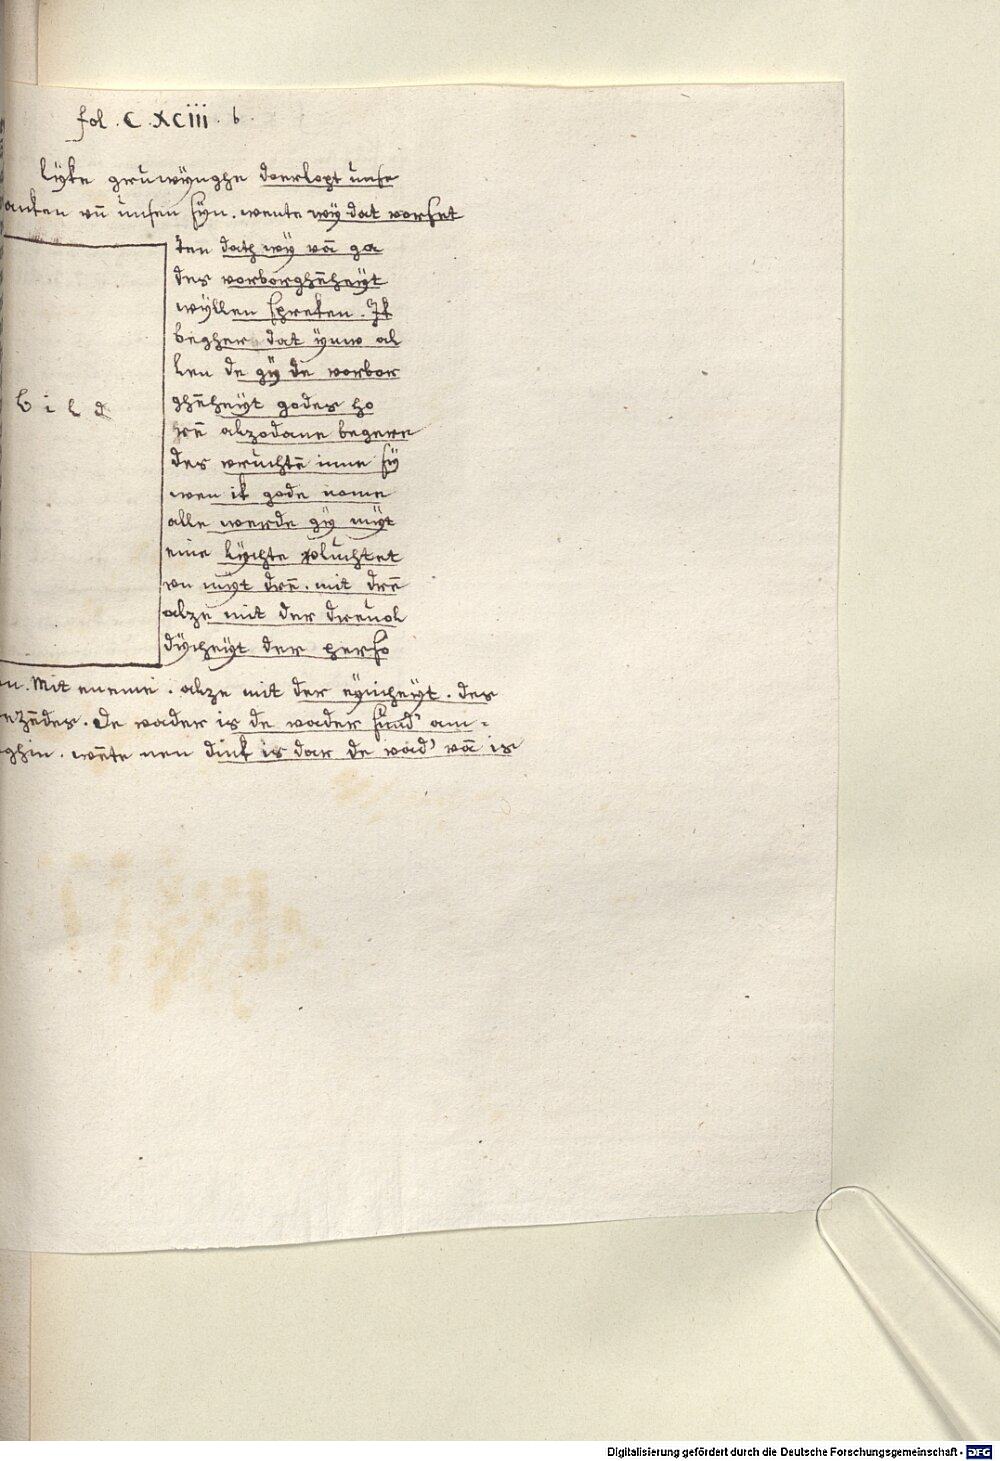 fol . C . XCiii . b .
lÿke gruwÿnghe doerlopt unse
anken vn̄ unsen sÿn . wente wÿ dat vorset
ten dath wÿ vā ga
des vorborghēheÿt
wÿllen spreken . Ik
begher dat ÿuw al
len de gÿ de vorbor
ghēheÿt godes ho
rē alzodane begere
des vruchtē inne sÿ
wen ik gode nome
alle werde gÿ mÿt
eine lÿchte voluchtet
vn mÿt drē . mit drē
alze mit der drevol
dÿcheÿt der perso
bild
n . Mit eneme . alze mit der eÿnicheÿt . des
ezēdes . De vader is de vader sund' am-
ghin . wēte nen dink is dar de vad' vā is
Digitalisierung gefördert durch die Deutsche Forschungsgemeinschaft - DFG